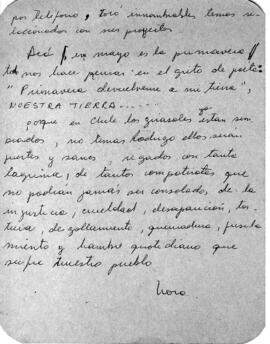 por teléfono, tocó innombrables temas re-
laccionados con sus proyectos
Acá, en mayo es la primavera
nos hace pensar en el grito de poeta
"Primavera devuélveme a mi tierra",
NUESTRA TIERRA......
porque en Chile los girasoles ya están sem
brados, no temas los serán
fuertes y sanos, regados con tanta
lagrima, de tantos compatriotas que
no podían jamás ser consolado, de la
injusticia, crueldad, desaparición, tor-
tura, degollamiento, quemadura, fusila
miento y hambre quotidiano que
sufre nuestro pueblo